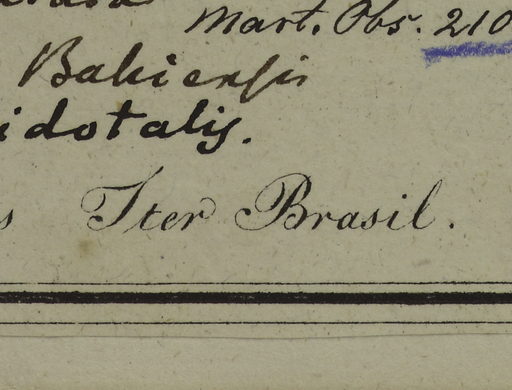 Mart. Obs. 210
Bahiensis
idotalis.
s Iter Brasil.